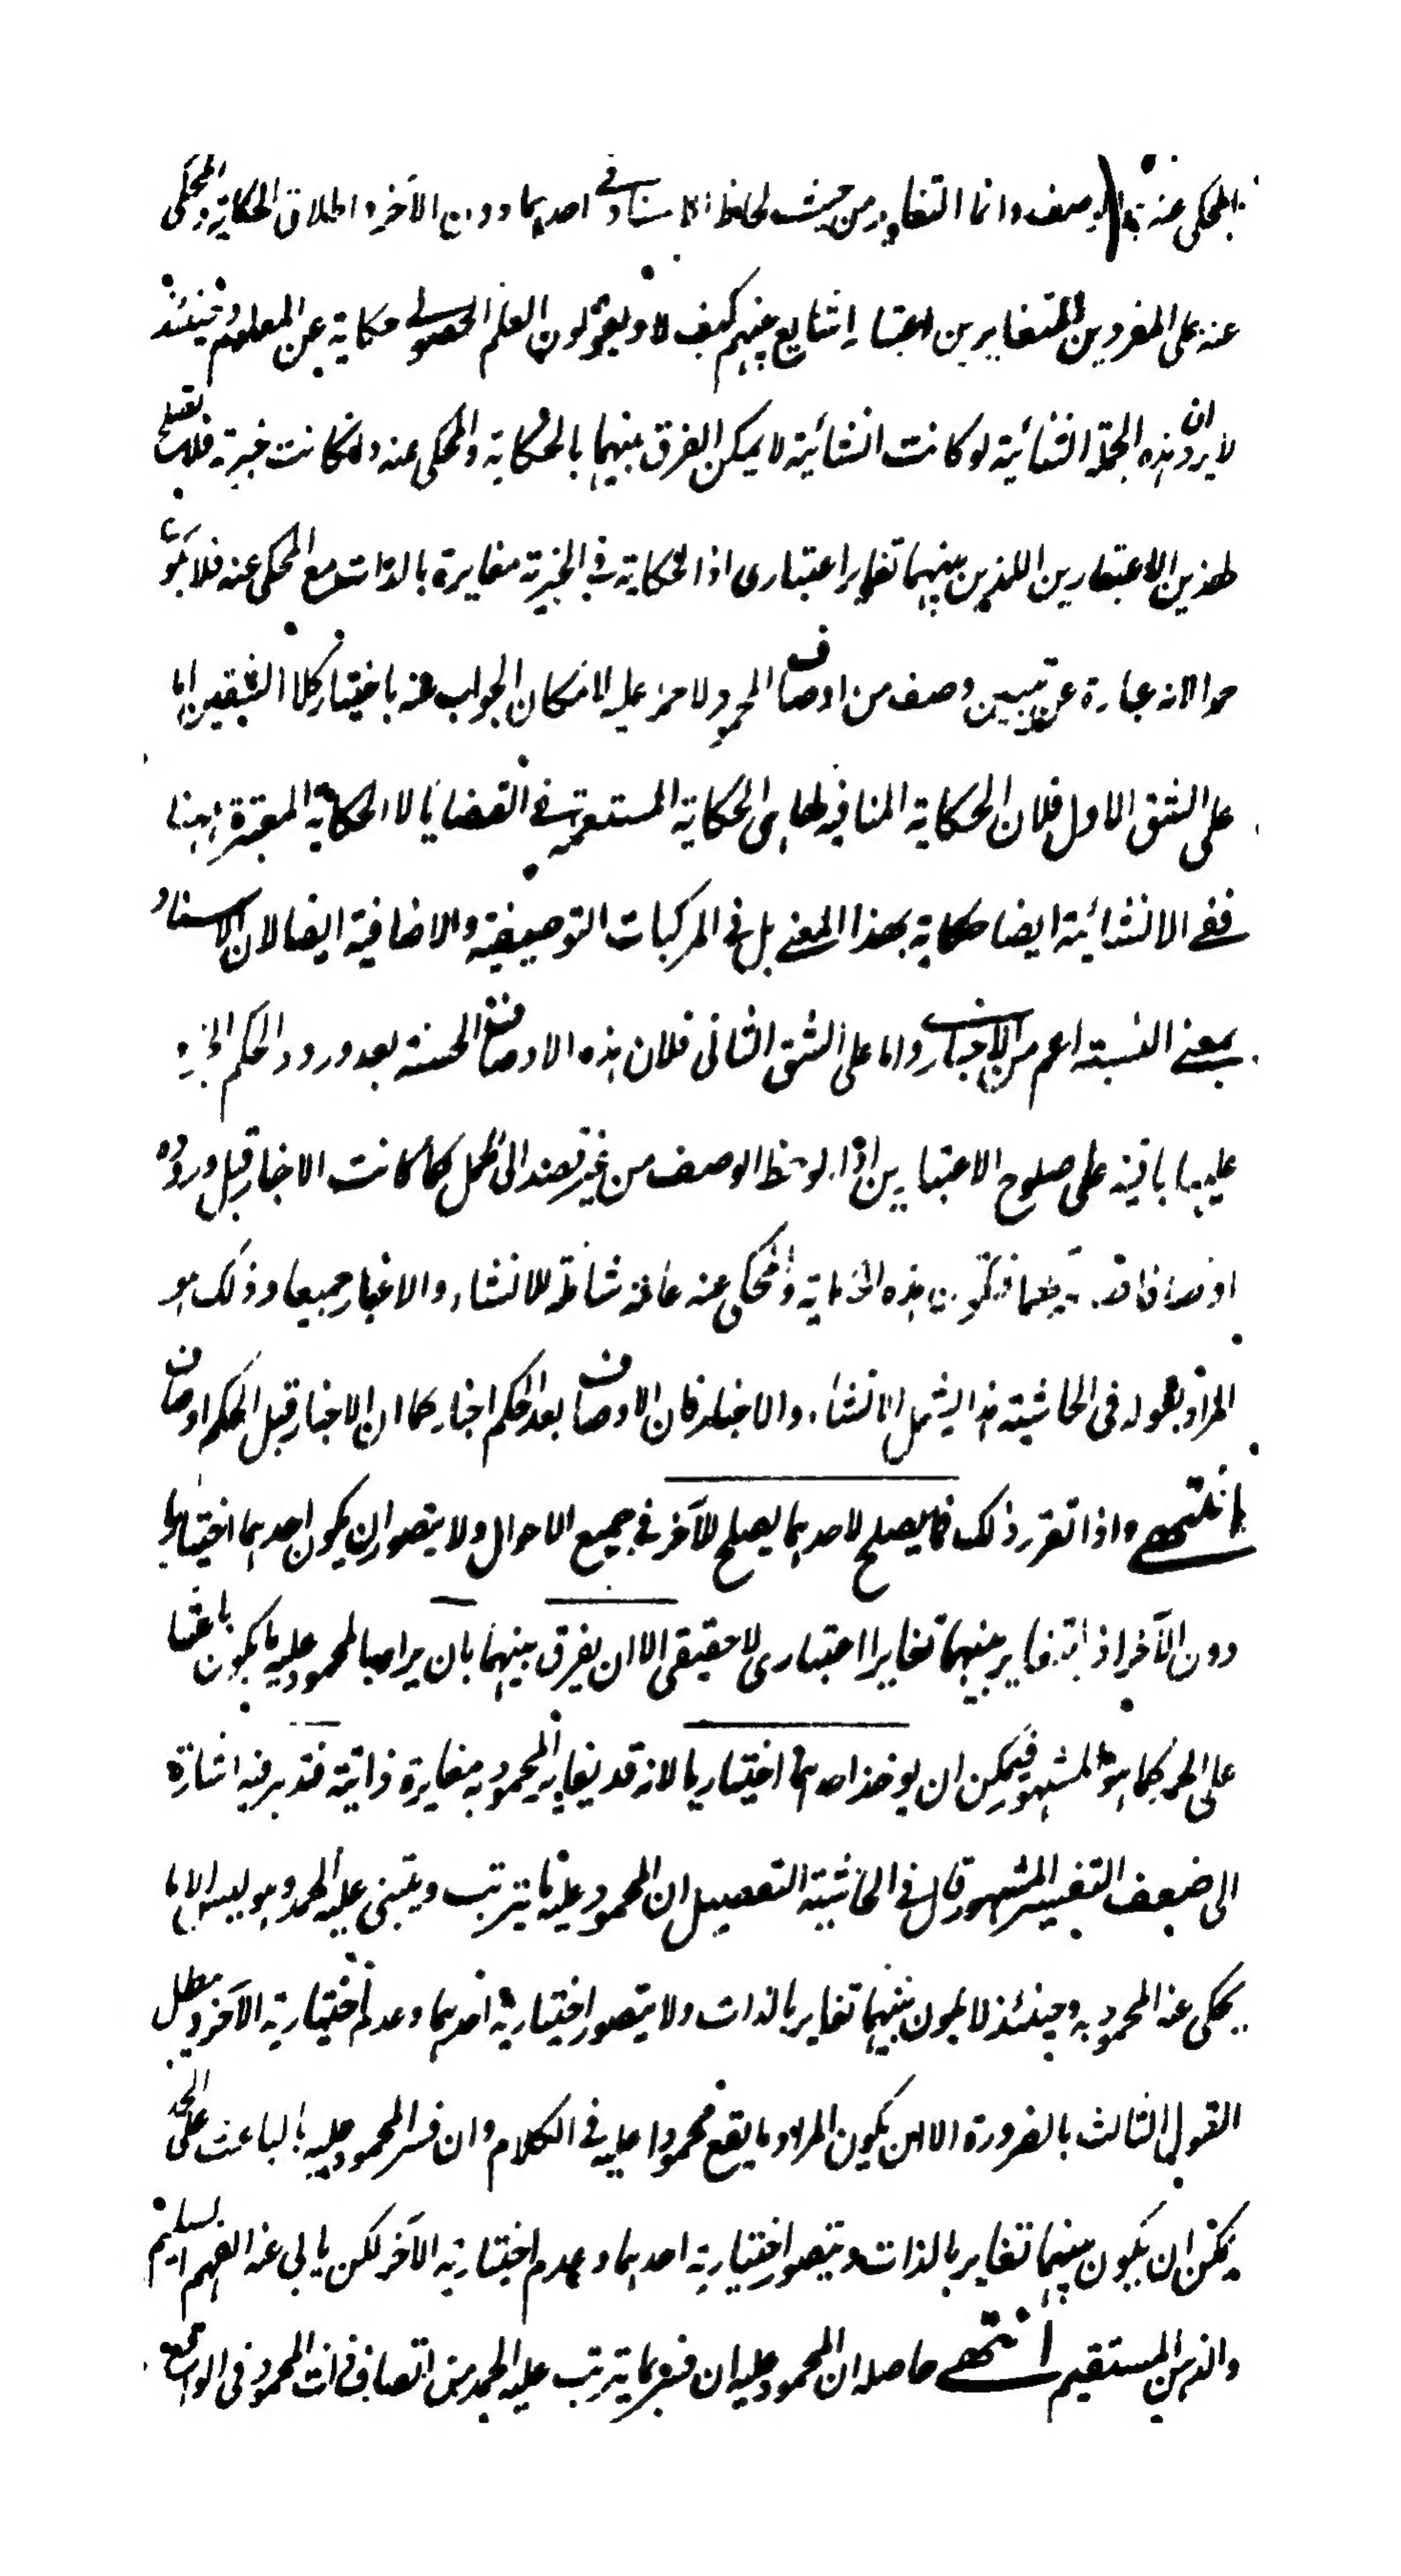 المحكى عنه الوصف وانما التغاير من حيث لحاظ الاسناد فى احدهما دون الآخر واطلاق الحكاية والمحكى
عنه على المفردين المتغايرين اعتبارا شايع بينهم كيف لا ويقولون العلم الحصولى حكاية عن المعلوم وحينئذ
لا يرد ان هذه الجملة الثنائية لو كانت انشائية لا يمكن الفرق بينهما بالحكاية والمحكى عنه ولو كانت خبرية فلا تصلح
لهذين الاعتبارين اللذين بينهما تغاير اعتبارى اذ الحكاية فى الخبرية مغايرة بالذات مع المحكى عنه فلا يكون
حمدا لانه عبارة عن تبيين وصف من اوصاف المحمود لا حمز عليه لامكان الجواب عنه باختيار كلا الشقين اما
على الشق الاول فلان الحكاية المنافية لها هى الحكاية المستعملة فى القضايا لا الحكاية المعتبرة ههنا
ففى الانشائية ايضا حكاية بهذا المعنى بل فى المركبات التوصيفية والاضافية ايضا لان الاسناد
بمعنى النسبة اعم من الاخبار واما على الشق الثانى فلان هذه الاوصاف الحسنة بعد ورود الحكم الخبرى
عليها باقية على صلوح الاعتبارين اذا لوحظ الوصف من غير قصد الى الحمل كما كانت الاخبار قبل وروده
اوصافا قطعا فتكون هذه الحكاية والمحكى عنه عامة شاملة للانشاء والاخبار جميعا وذلك هو
المراد بقوله فى الحاشية هذا يشمل الانشاء والاخبار فان الاوصاف بعد الحكم اخبار كما ان الاخبار قبل الحكم اوصاف
انتهى واذا تقرر ذلك فما يصلح لاحدهما يصلح للآخر فى جميع الاحوال ولا يتصور ان يكون احدهما اختياريا
دون الآخر اذ التغاير بينهما تغايرا اعتبارى لا حقيقى الا ان يفرق بينهما بان يراد بالمحمود عليه ما يكون باعثا
على الحمد كما هو المشهور فيمكن ان يوخذ احدهما اختياريا لانه قد يغاير المحمود به مغايرة ذاتية فتدبر فيه اشارة
الى ضعف التفسير المشهور قال فى الحاشية التفصيل ان المحمود عليه ما يترتب ويتبنى عليه الحمد وهو ليس الا ما
يحكى عنه المحمود به وحينئذ لا يكون بينهما تغاير بالذات ولا يتصور اختيارية احدهما وعدم اختيارية الآخر ويبطل
القول الثالث بالضرورة الا ان يكون المراد ما يقع محمودا عليه فى الكلام وان فسر المحمود عليه بالباعث على الحمد
يمكن ان يكون بينهما تغاير بالذات ويتصور اختيارية احدهما وعدم اختيارية الآخر لكن يابى عنه الفهم السليم
والذهن المستقيم انتهى حاصله ان المحمود عليه ان فسر بما يترتب عليه الحمد من اتصاف ذات المحمود فى الواقع